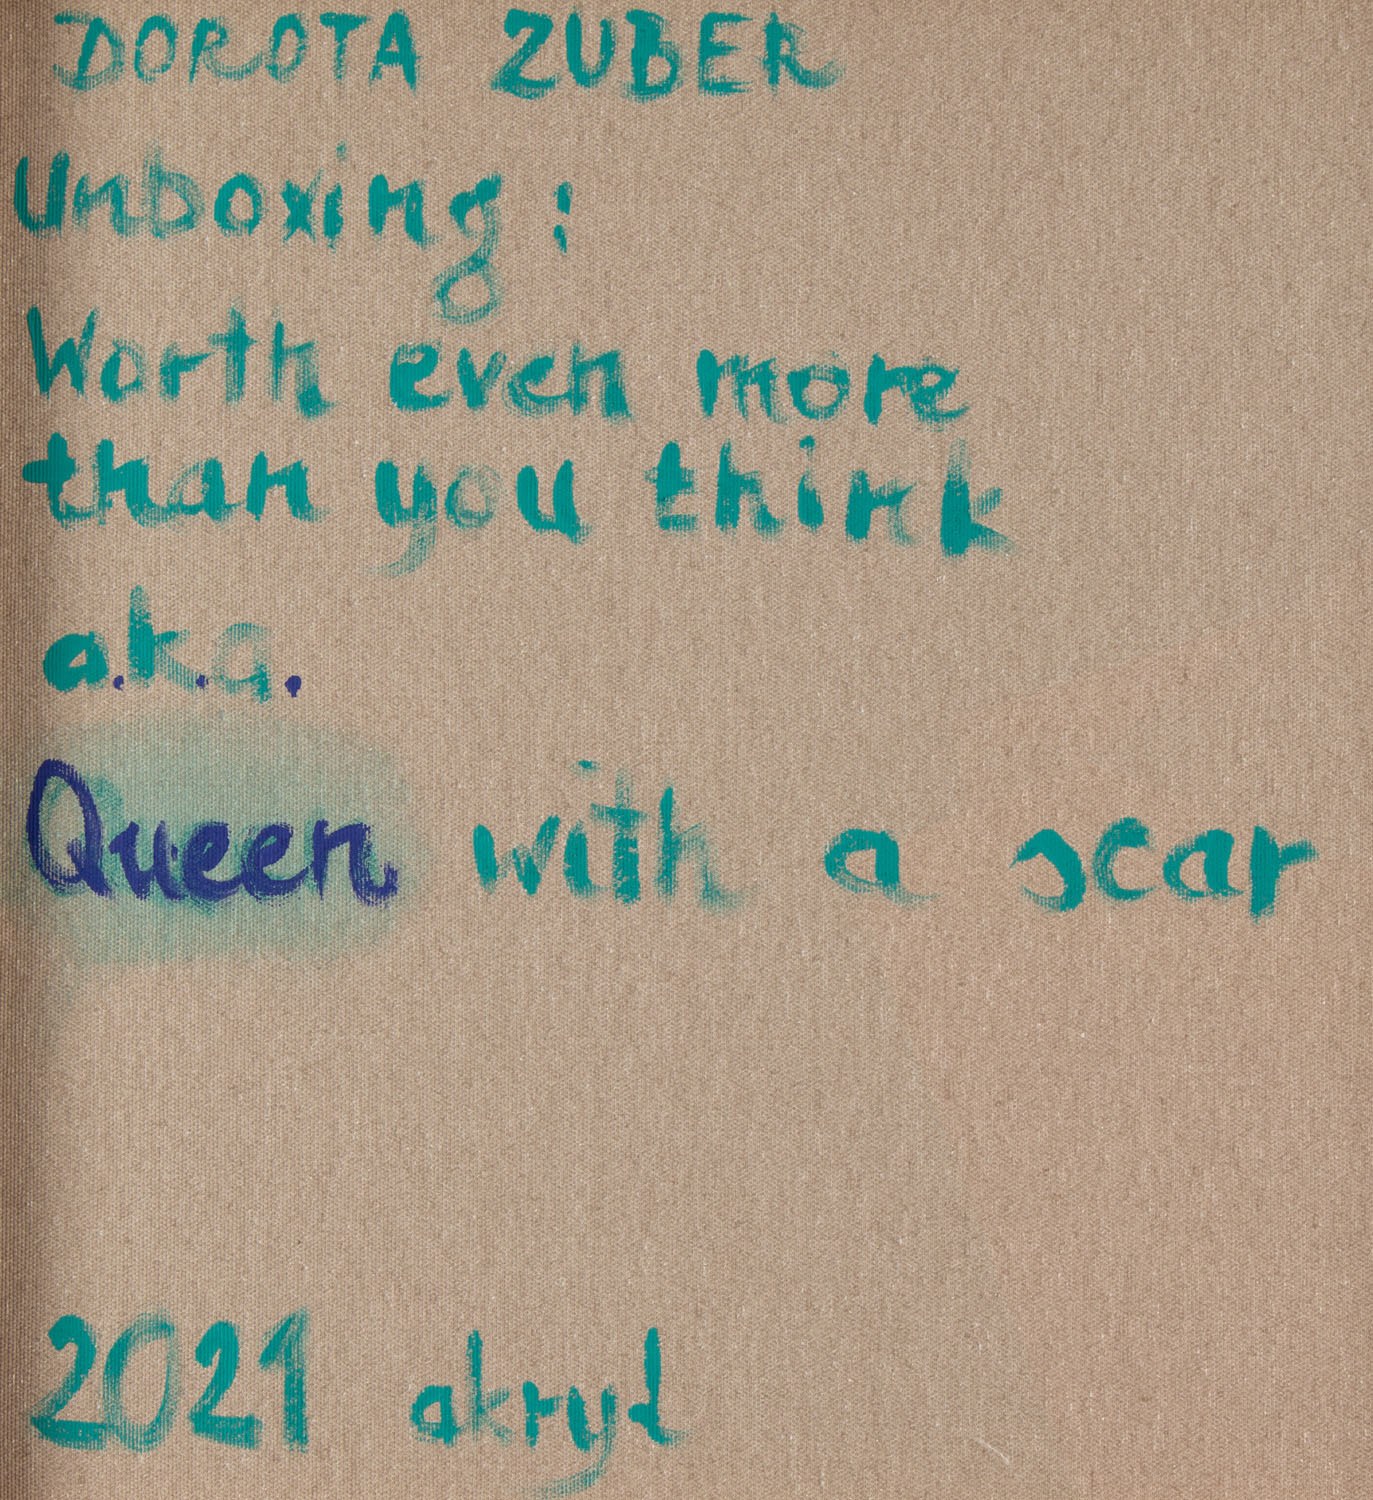 DOROTA ZUBER
Unboxing:
Worth even more
than you think
a.k.a.
Queen with a scar
2021 akryl